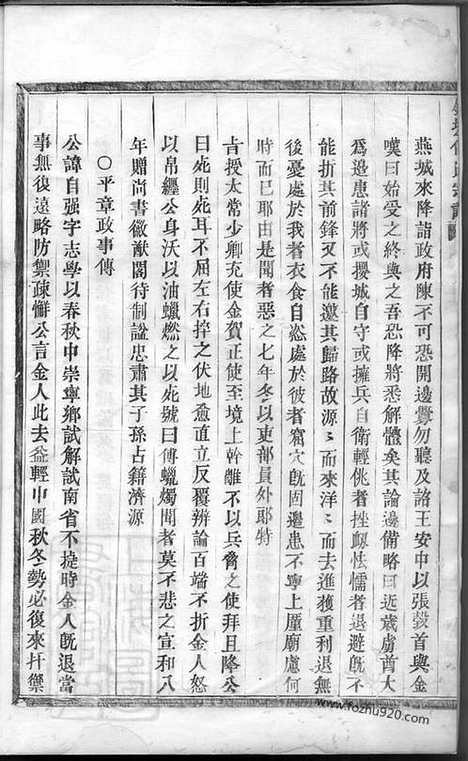 燕城來降詣政府陳不可恐開邊釁勿聽及詣王安中以張瑴首與金
嘆曰始受之終與之吾恐降將悉解體矣其論邊備略曰近歲虜酋大
為邊患諸將或擐城自守或擁兵自衛輕佻者挫衂怯懦者退避旣不
能折其前鋒又不能邀其歸路故源源而來洋洋而去進獲重利退無
後憂處於我者衣食自恣處於彼者窟穴旣固邊患不寧上厪廟慮何
時而已耶由是聞者惡之七年冬以吏部員外耶特
旨授太常少卿充使金賀正使至境上幹離不以兵脅之使拜且降公
曰死則死耳不屈左右捽之伏地愈直立反覆辨論百端不折金人怒
以帛纏公身沃以油蠟燃之以死號曰傅蠟燭聞者莫不悲之宣和八
年贈尚書徽猷閣待制謚忠肅其子孫占籍濟源
〇平章政事傳
公諱自强字志學以春秋中崇寧鄉試解試南省不捷時金人旣退當
事無復遠略防禦疎懈公言金人此去益輕中國秋冬勢必復來扞禦
www.fozhu920.com